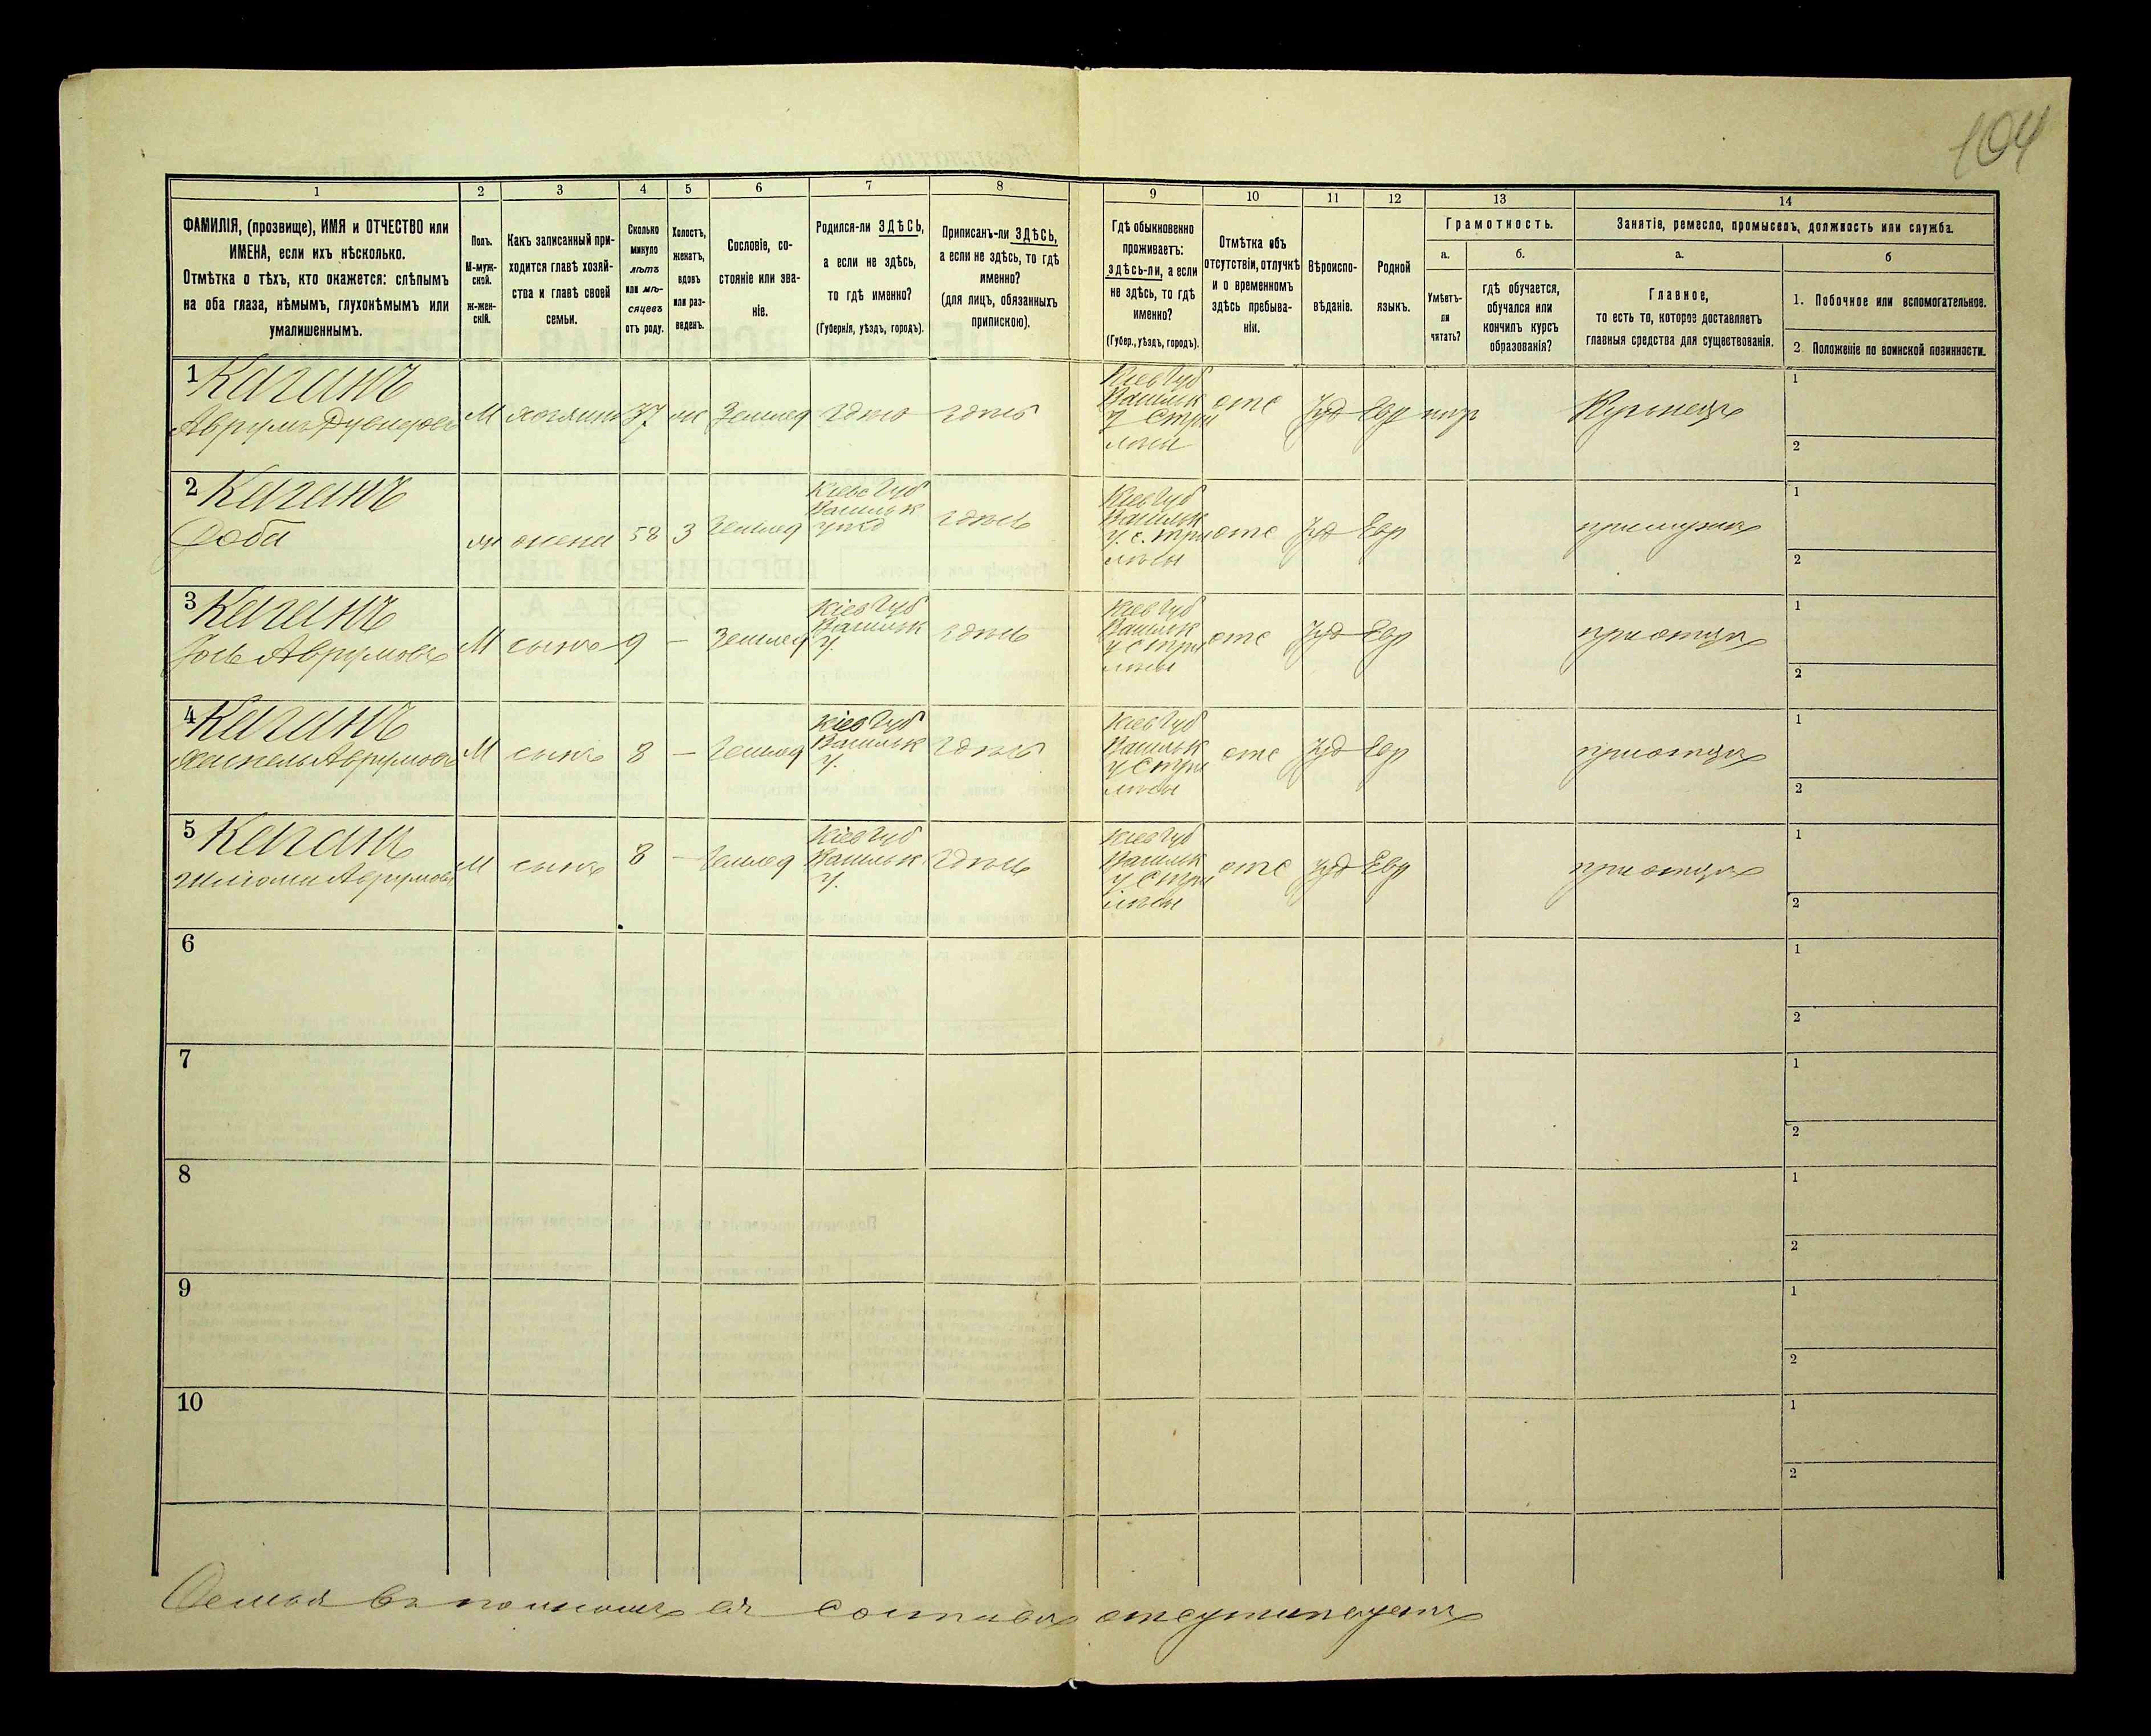 104
1
2
3
4
5
6
7
8
9
10
11
12
13
14
ФАМИЛІЯ, (прозвище), ИМЯ и ОТЧЕСТВО или
ИМЕНА, если ихъ нѣсколько.
Отмѣтка о тѣхъ, кто окажется: слѣпымъ
на оба глаза, нѣмымъ, глухонѣмымъ или
умалишеннымъ.
Полъ.
М-муж-
ской.
ж-жен-
скій.
Какъ записанный при-
ходится главѣ хозяй-
ства и главѣ своей
семьи.
Сколько
минуло
лѣтъ
или мѣ-
сяцевъ
отъ роду.
Холостъ,
женатъ,
вдовъ
или раз-
веденъ.
Сословіе, со-
стояніе или зва-
ніе.
Родился-ли ЗДѢСЬ,
а если не здѣсь,
то гдѣ именно?
(Губернія, уѣздъ, городъ).
Приписанъ-ли ЗДѢСЬ,
а если не здѣсь, то гдѣ
именно?
(для лицъ, обязанныхъ
припискою).
Гдѣ обыкновенно
проживаетъ:
здѣсь-ли, а если
не здѣсь, то гдѣ
именно?
(Губер., уѣздъ, городъ).
Отмѣтка объ
отсутствіи, отлучкѣ
и о временномъ
здѣсь пребыва-
ніи.
Вѣроиспо-
вѣданіе.
Родной
языкъ.
Грамотность.
а.
Умѣетъ-
ли
читать?
б.
гдѣ обучается,
обучался или
кончилъ курсъ
образованія?
Занятіе, ремесло, промыселъ, должность или служба.
а.
Главное,
то есть то, которое доставляетъ
главныя средства для существованія.
б
1. Побочное или вспомогательное.
2. Положеніе по воинской повинности.
1 Каганъ
Аврумъ
М
37
Землед
здѣсь
Кіев Губ
Васильк
у
отс
Іуд
Евр
Кузнецъ
1
2
2 Каганъ
Доба
ж
жена
3
Землед
Кіевс Губ
Васильк
уѣзд
здѣсь
Кіев Губ
Васильк
у. с.
отс
Іуд
Евр
при мужѣ
1
2
3 Каганъ
Іось Аврумовъ
М
сынъ
9
—
Землед
Кіев Губ
Васильк
у.
здѣсь
Кіев Губ
Васильк
отс
Іуд
Евр
при отцѣ
1
2
4 Каганъ
Аврумовъ
М
сынъ
8
—
Землед
Кіев Губ
Васильк
у.
здѣсь
Кіев Губ
Васильк
отс
Іуд
Евр
при отцѣ
1
2
5 Каганъ
Аврумовъ
М
сынъ
8
—
Землед
Кіев Губ
Васильк
у.
здѣсь
Кіев Губ
Васильк
отс
Іуд
Евр
при отцѣ
1
2
6
1
2
7
1
2
8
1
2
9
1
2
10
1
2
Семья въ полномъ ея составѣ отсутствуетъ